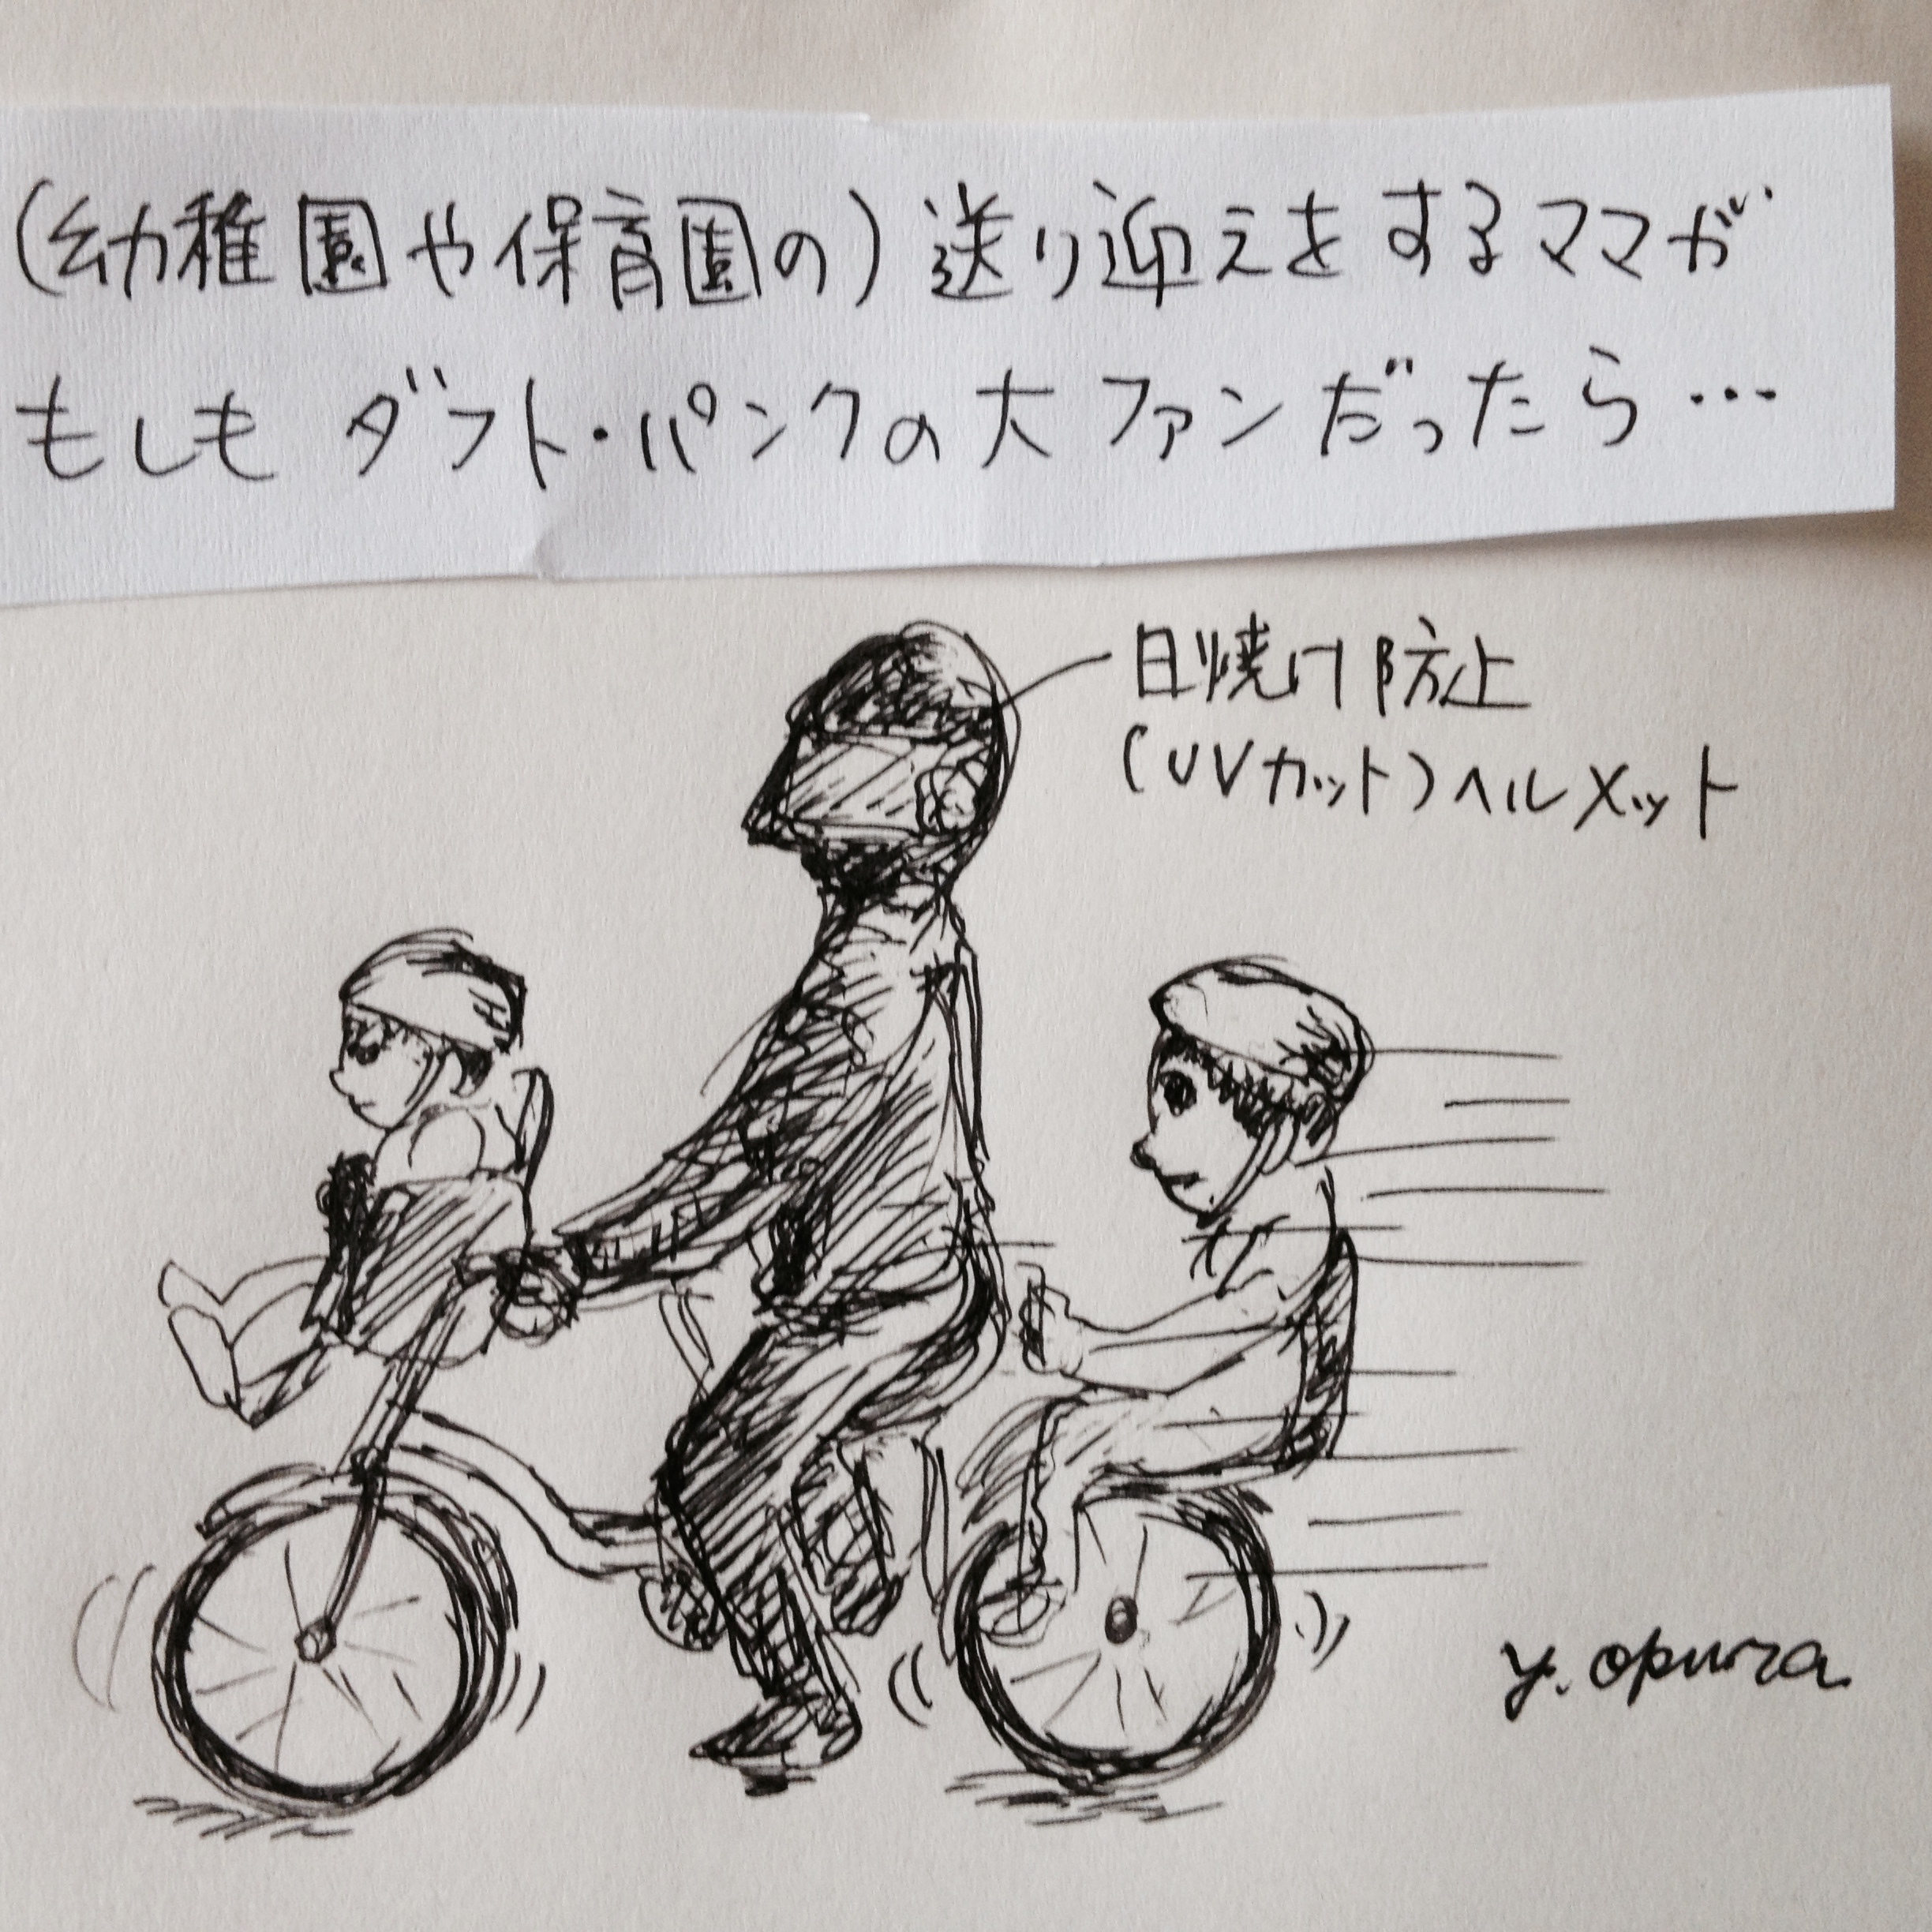 (幼稚園や保育園の)送り迎えをするママが
もしもダフト・パンクの大ファンだったら…
日焼け防止
(UVカット)ヘルメット
y. opura